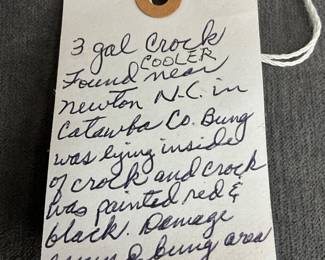 3 gal Crock
COOLER
Found near
Newton N.C. in
Catawba Co. Bung
was lying inside
of crock and crock
was painted red &
black. Damage
bung area